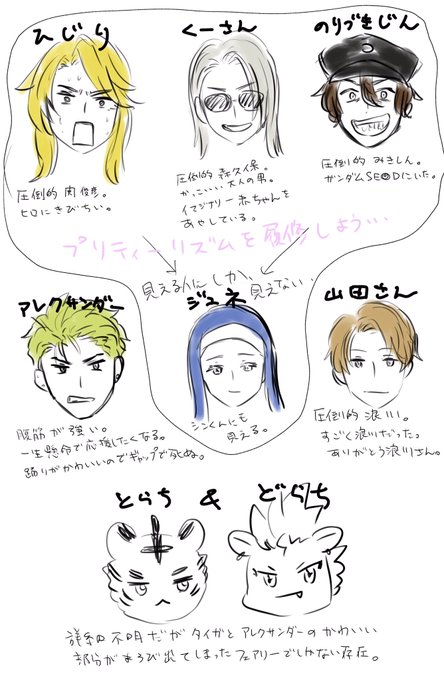 ひじり
くーさん
のりづきじん
圧倒的 関俊彦。
ヒロにきびちい。
圧倒的 森久保。
かっこいい大人の男。
イマジナリー赤ちゃんを
あやしている。
圧倒的 みきしん。
ガンダムSEEDにいた。
プリティーリズムを履修しよう…
見える人にしか、見えない…
アレクサンダー
ジュネ
山田さん
腹筋が強い。
一生懸命で応援したくなる。
踊りがかわいいのでギャップで死ぬ。
シンくんにも
見える。
圧倒的 浪川。
すごく浪川だった。
ありがとう浪川さん。
とらち & どらち
詳細不明だがタイガとアレクサンダーのかわいい
部分がまろび出てしまったフェアリーでしかない存在。